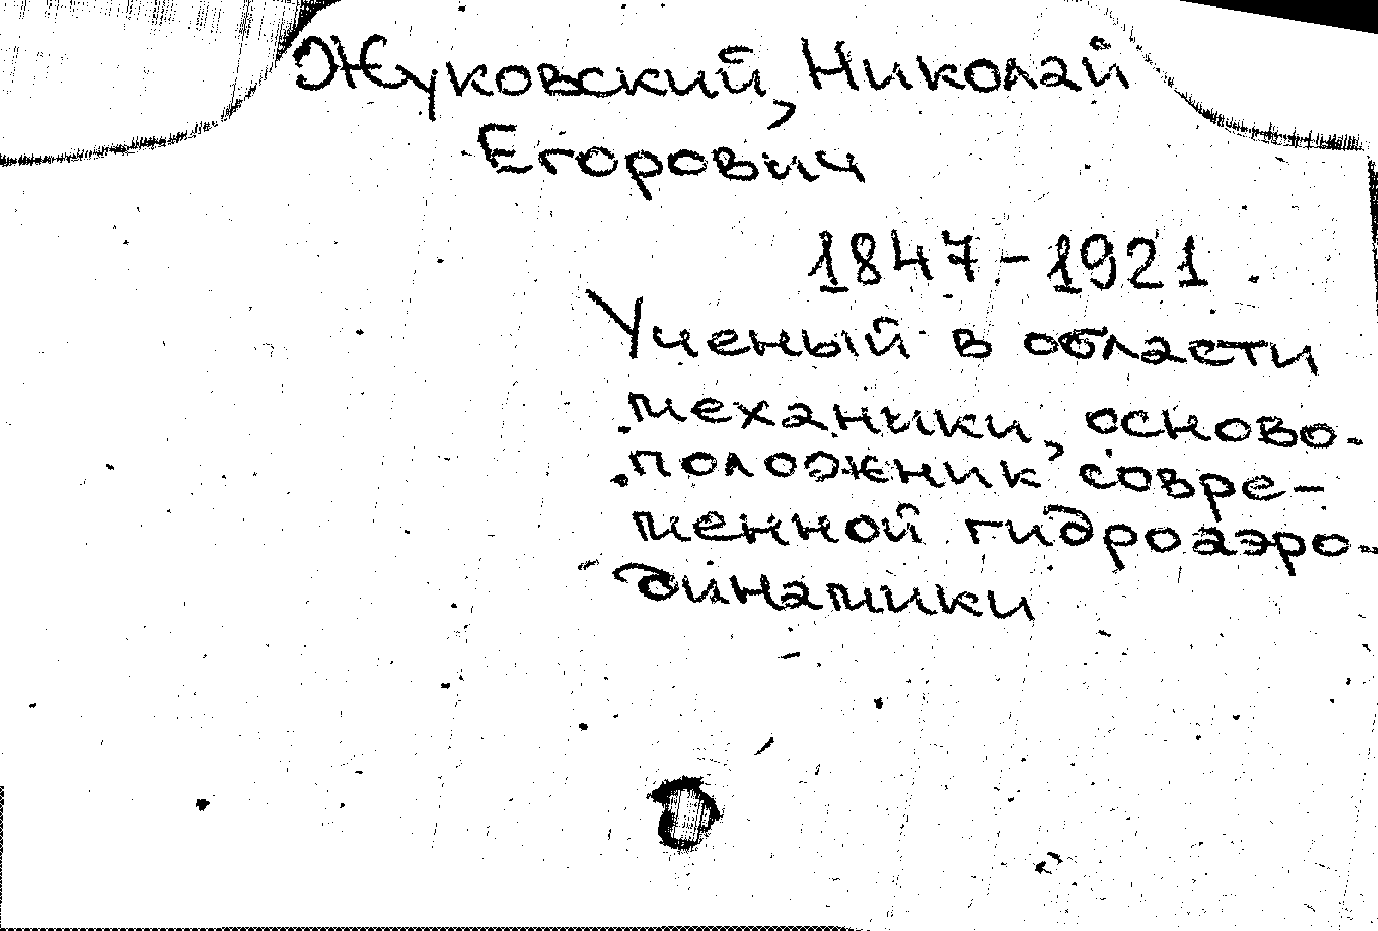 Жуковский, Николай
Егорович
1847-1921
Ученый в области
механики, осново-
положник совре-
менной гидроаэро-
динамики